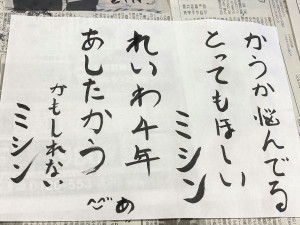 かうか悩んでる
とってもほしい
ミシン
れいわ4年
あしたかう
かもしれない
ミシン